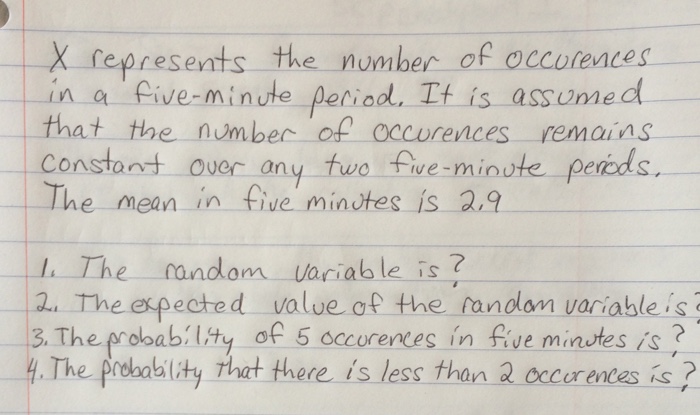 X represents the number of occurences
in a five-minute period. It is assumed
that the number of occurences remains
constant over any two five-minute periods.
The mean in five minutes is 2.9
1. The random variable is?
2. The expected value of the random variable is?
3. The probability of 5 occurences in five minutes is?
4. The probability that there is less than 2 occurences is?